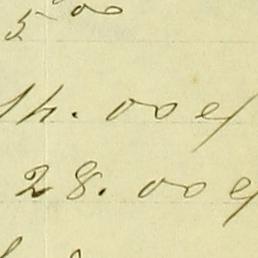 5 00
14. 00
28. 00